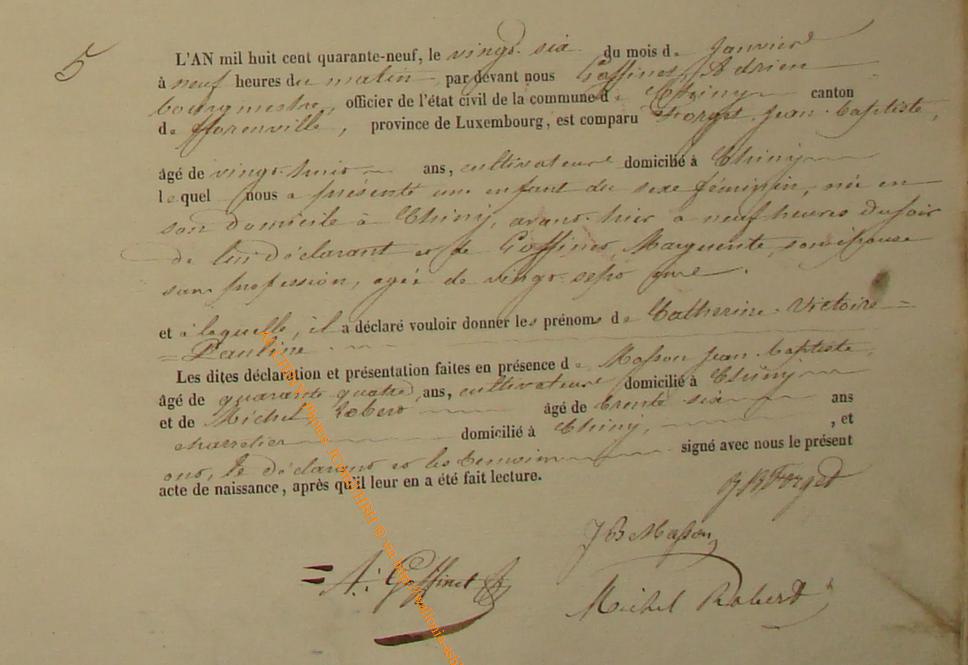 5
L'AN mil huit cent quarante-neuf, le vingt six du mois de Janvier
à neuf heures du matin par devant nous Goffinet, Adrien
bourgmestre, officier de l'état civil de la commune de Chiny canton
de fflorenville, province de Luxembourg, est comparu Forget Jean-baptiste,
âgé de vingt huit ans, cultivateur domicilié à Chiny
lequel nous a présenté une enfant du sexe féminin, née en
son domicile à Chiny, avant-hier à neuf heures du soir
de lui déclarant et de Goffinet, Marguerite, son épouse
sans profession, agée de vingt-sept ans.
et à laquelle, il a déclaré vouloir donner les prénoms de Catherine-Victoire
=Pauline
Les dites déclaration et présentation faites en présence de Masson Jean-baptiste,
âgé de quarante quatre ans, cultivateur domicilié à Chiny
et de Michel Robert âgé de trente six ans
charretier domicilié à Chiny, , et
ont, le déclarant et les temoins signé avec nous le présent
acte de naissance, après qu'il leur en a été fait lecture.
JB Forget
JB Masson
= A. Goffinet
Michel Robert